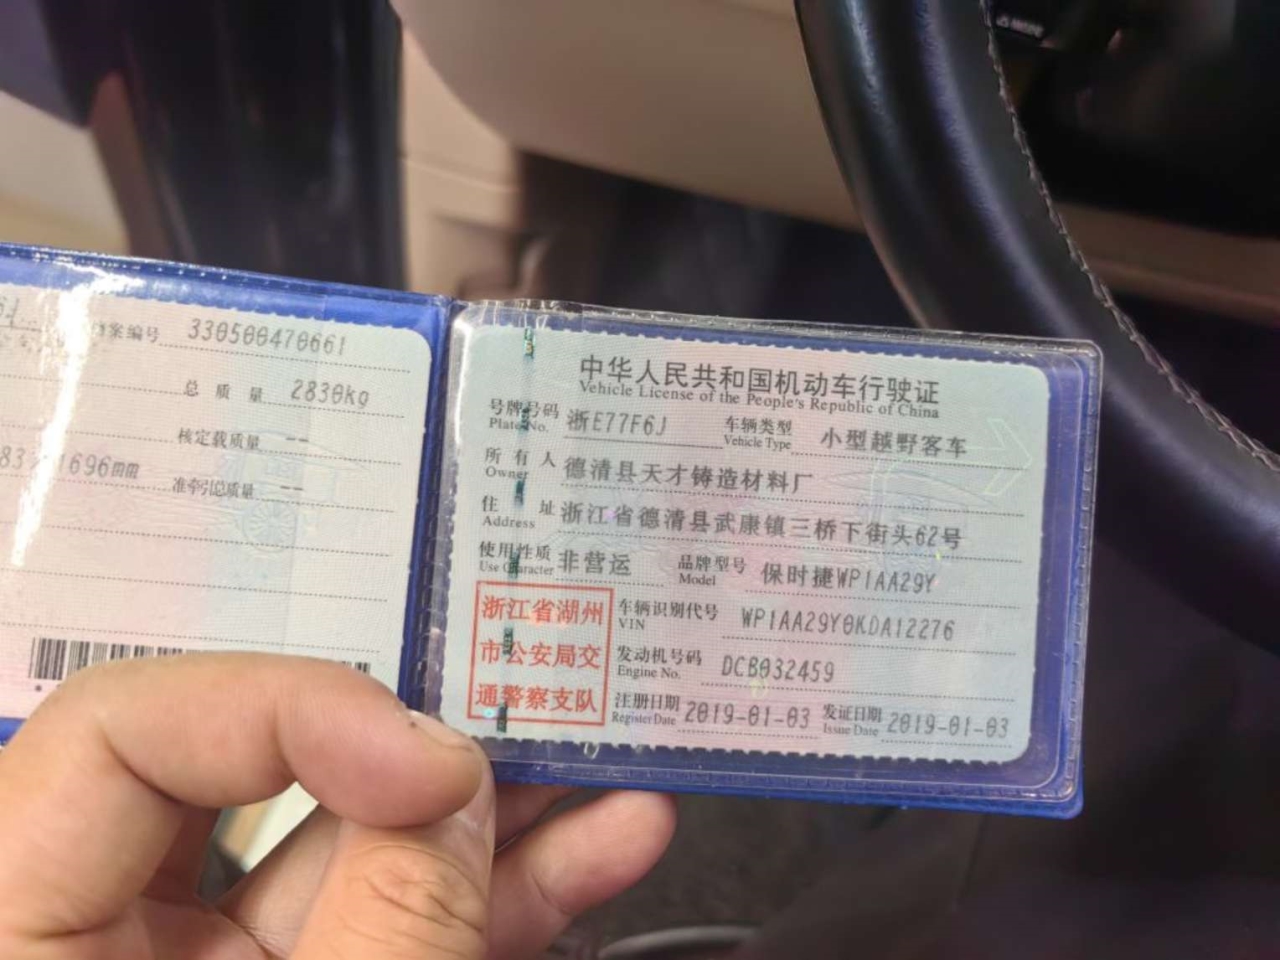 档案编号 330500470661
总质量 2830kg
核定载质量 --
1696mm 准牵引总质量 --
中华人民共和国机动车行驶证
Vehicle License of the People's Republic of China
号牌号码 浙E77F6J 车辆类型 小型越野客车
Plate No. Vehicle Type
所有人 德清县天才铸造材料厂
Owner
住址 浙江省德清县武康镇三桥下街头62号
Address
使用性质 非营运 品牌型号 保时捷WP1AA29Y
Use Character Model
浙江省湖州
市公安局交
通警察支队
车辆识别代号 WP1AA29Y0KDA12276
VIN
发动机号码 DCB032459
Engine No.
注册日期 2019-01-03 发证日期 2019-01-03
Register Date Issue Date